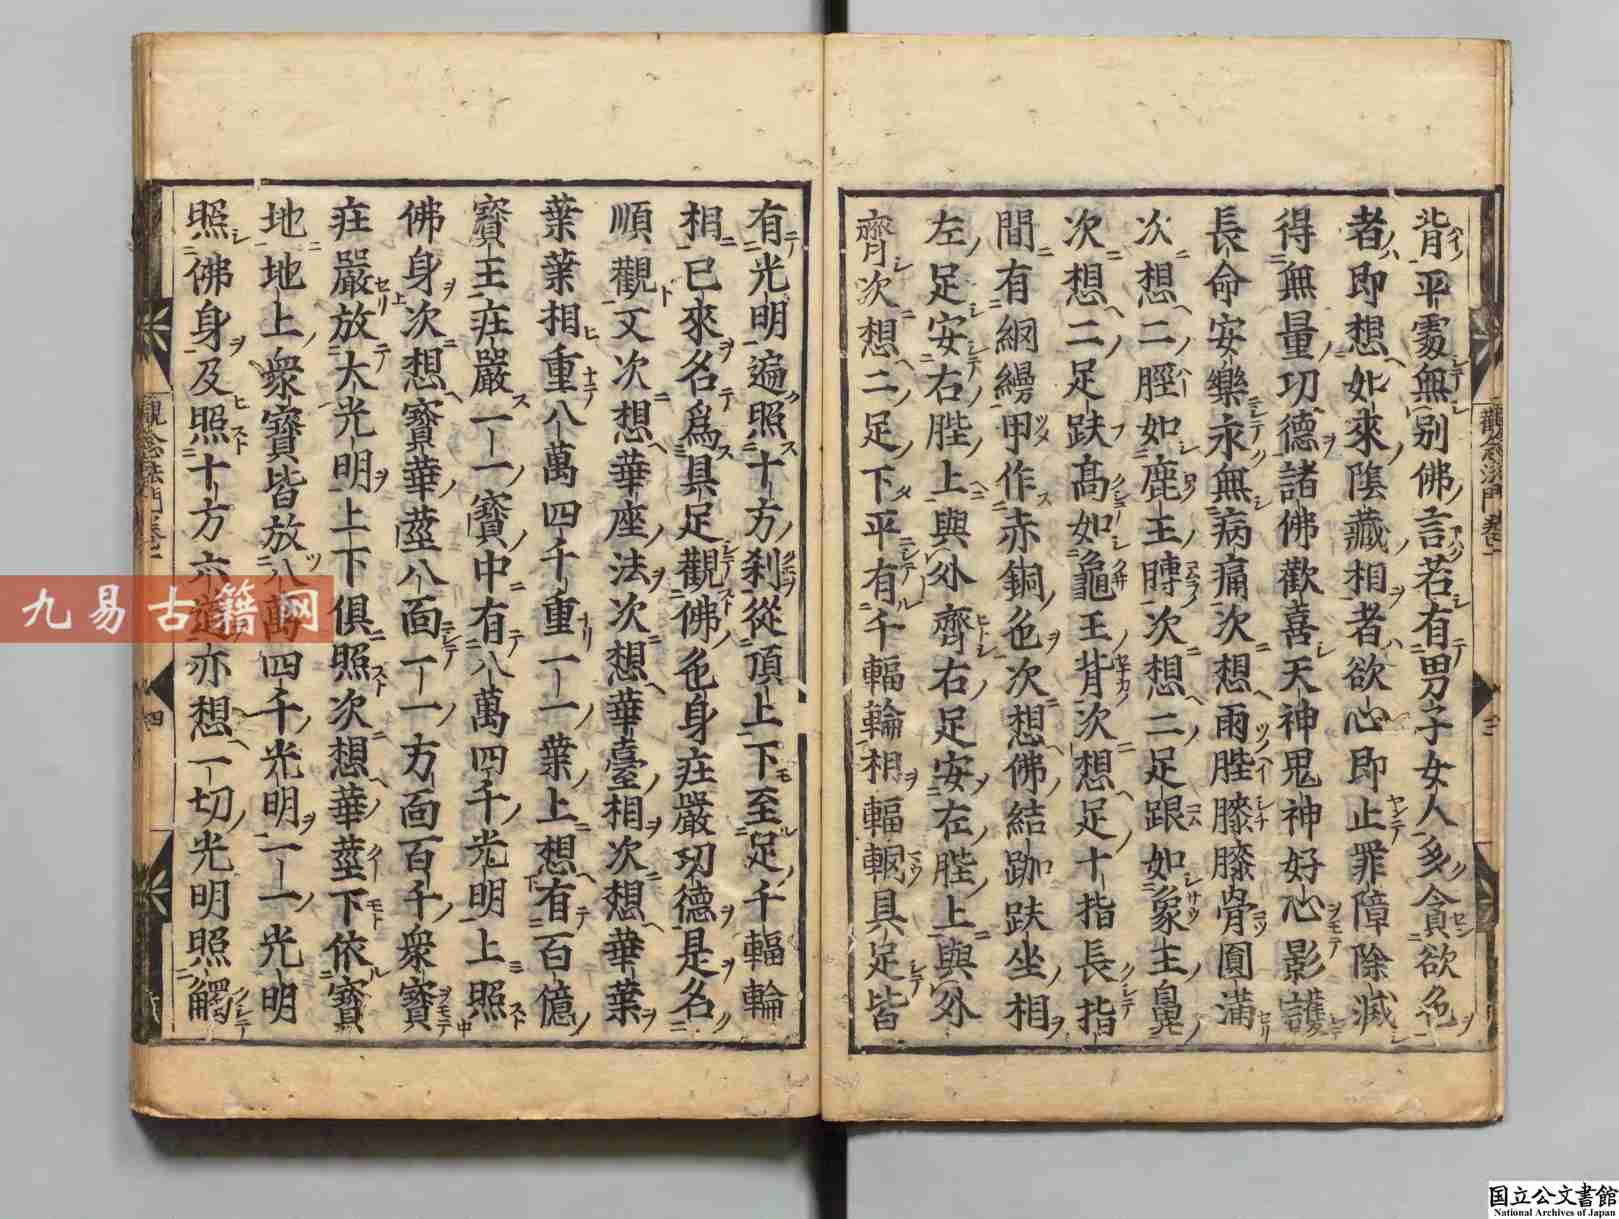 背平處無別佛言若有男子女人多貪欲色
者即想如來陰藏相者欲心即止罪障除滅
得無量功德諸佛歡喜天神鬼神好心影護
長命安樂永無病痛次想兩䏶膝膝骨圓滿
次想二脛如鹿王䏝次想二足跟如象王鼻
次想二足趺高如龜王背次想足十指長指
間有網縵甲作赤銅色次想佛結跏趺坐相
左足安右䏶上與外齊右足安左䏶上與外
齊次想二足下平有千輻輪相輻輞具足皆
有光明遍照十方刹從頂上下至足千輻輪
相已來名爲具足觀佛色身莊嚴功德是名
順觀文次想華座法次想華臺相次想華葉
葉葉相重八萬四千重一一葉上想有百億
寶王莊嚴一一寶中有八萬四千光明上照
佛身次想寶華莖八面一一方面百千衆寶
莊嚴放大光明上下俱照次想華莖下依寶
地地上衆寶皆放八萬四千光明一一光明
照佛身及照十方六道亦想一切光明照觸
觀念法門
觀念法門
四
九易古籍网
国立公文書館
National Archives of Japan